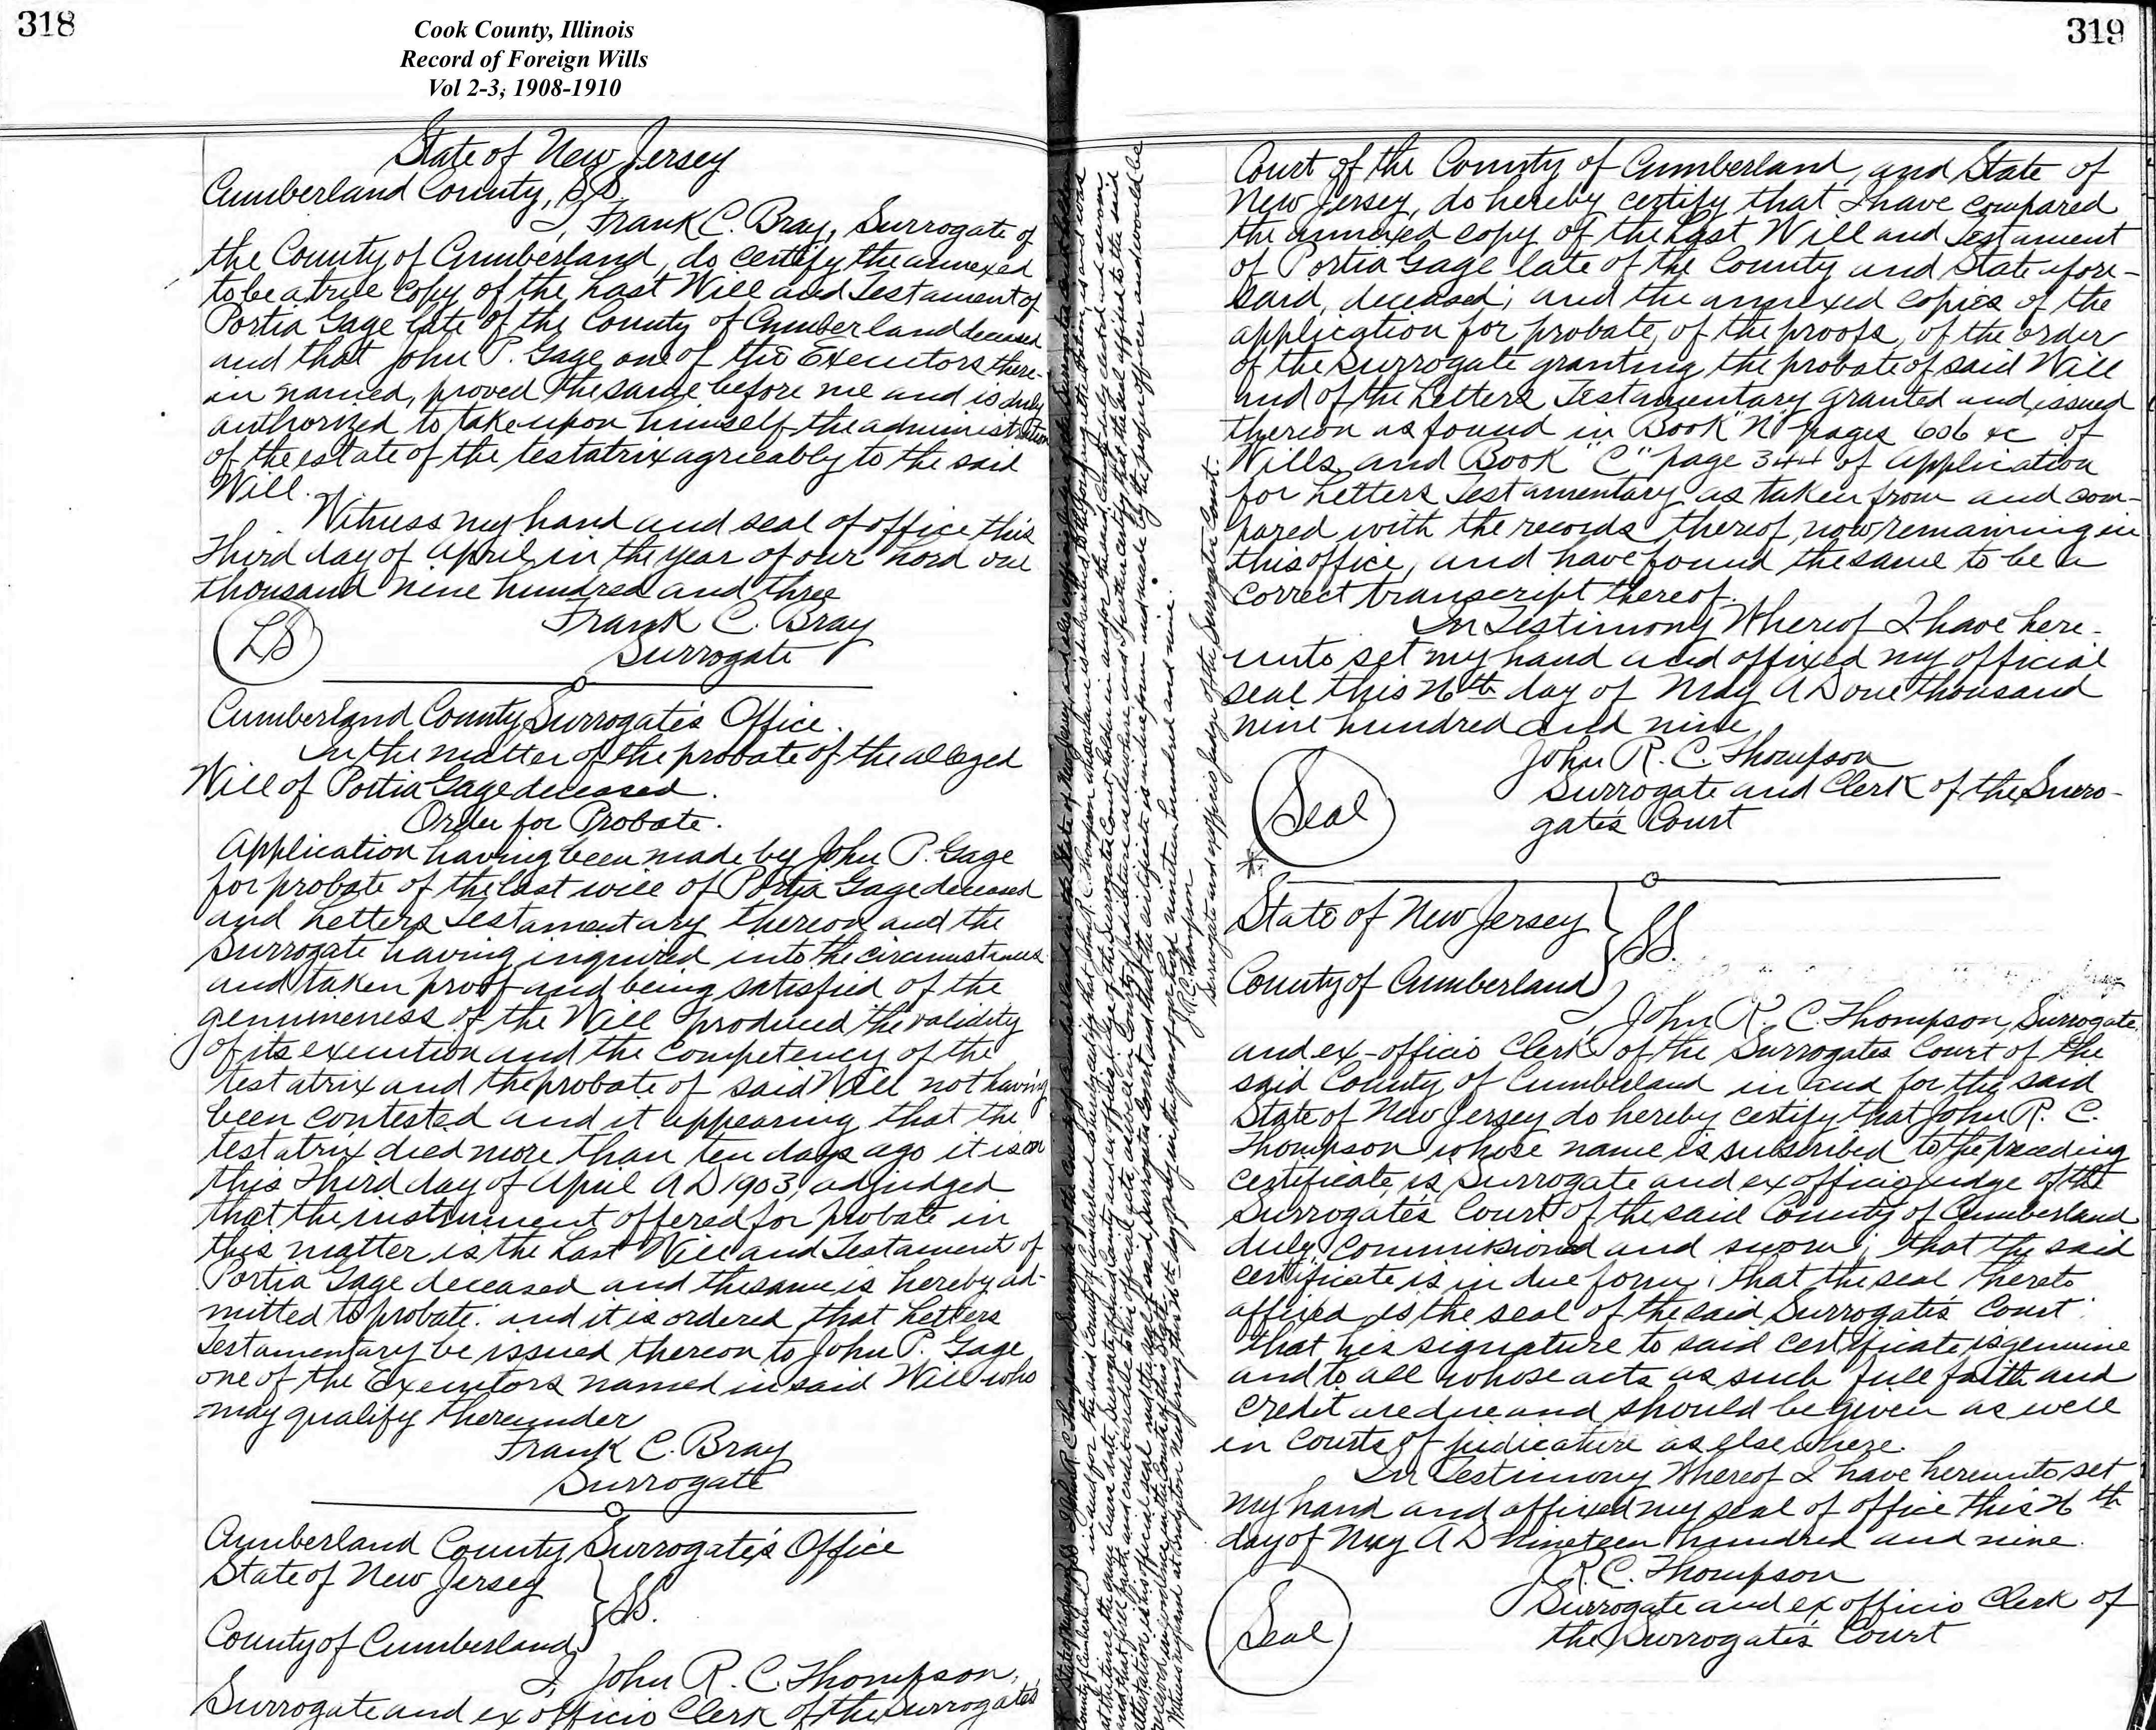 318
Cook County, Illinois
Record of Foreign Wills
Vol 2-3; 1908-1910
State of New Jersey
Cumberland County, SS.
I, Frank C. Bray, Surrogate of
the County of Cumberland, do certify the annexed
to be a true copy of the Last Will and Testament of
Portia Gage late of the County of Cumberland deceased
and that John P. Gage one of the Executors there-
in named, proved the same before me and is duly
authorized to take upon himself the administration
of the estate of the testatrix agreeably to the said
Will.
Witness my hand and seal of office this
Third day of April, in the year of our Lord one
thousand nine hundred and three
Frank C. Bray
LS
Surrogate
Cumberland County Surrogate's Office.
In the matter of the probate of the alleged
Will of Portia Gage deceased.
Order for Probate.
Application having been made by John P. Gage
for probate of the last will of Portia Gage deceased
and Letters Testamentary thereon and the
Surrogate having inquired into the circumstances
and taken proof and being satisfied of the
genuineness of the Will produced the validity
of its execution and the competency of the
testatrix and the probate of said Will not having
been contested and it appearing that the
testatrix died more than ten days ago it is on
this Third day of April A D 1903, adjudged
that the instrument offered for probate in
this matter is the Last Will and Testament of
Portia Gage deceased and the same is hereby ad-
mitted to probate: and it is ordered that Letters
Testamentary be issued thereon to John P. Gage
one of the Executors named in said Will who
may qualify thereunder
Frank C. Bray
Surrogate
Cumberland County Surrogate's Office
State of New Jersey
SS.
County of Cumberland
I, John R. C. Thompson,
Surrogate and ex officio Clerk of the Surrogates
319
Court of the County of Cumberland, and State of
New Jersey, do hereby certify that I have compared
the annexed copy of the Last Will and Testament
of Portia Gage late of the County and State afore-
said, deceased; and the annexed copies of the
application for probate, of the proofs, of the order
of the Surrogate granting the probate of said Will
and of the Letters Testamentary granted and issued
thereon as found in Book "N" pages 606 &c of
Wills and Book "C" page 344 of Application
for Letters Testamentary as taken from and com-
pared with the records thereof, now remaining in
this office, and have found the same to be a
correct transcript thereof.
In Testimony Whereof I have here-
unto set my hand and affixed my official
seal this 26th day of May A D one thousand
nine hundred and nine
John R. C. Thompson
Seal
Surrogate and Clerk of the Surro-
gates Court
*
State of New Jersey
SS.
County of Cumberland
I, John R. C. Thompson, Surrogate
and ex-officio Clerk of the Surrogates Court of the
said County of Cumberland in and for the said
State of New Jersey do hereby certify that John R. C.
Thompson whose name is subscribed to the preceding
certificate, is Surrogate and ex officio judge of the
Surrogate's Court of the said County of Cumberland
duly commissioned and sworn; that the said
certificate is in due form; that the seal thereto
affixed is the seal of the said Surrogate's Court:
that his signature to said certificate is genuine
and to all whose acts as such full faith and
credit are due and should be given as well
in Courts of judicature as elsewhere.
In Testimony Whereof I have hereunto set
my hand and affixed my seal of office this 26th
day of May A D nineteen hundred and nine.
J. R. C. Thompson
Seal
Surrogate and ex officio Clerk of
the Surrogate's Court
J.R.C. Thompson
Surrogate and ex officio judge of the Surrogates Court.